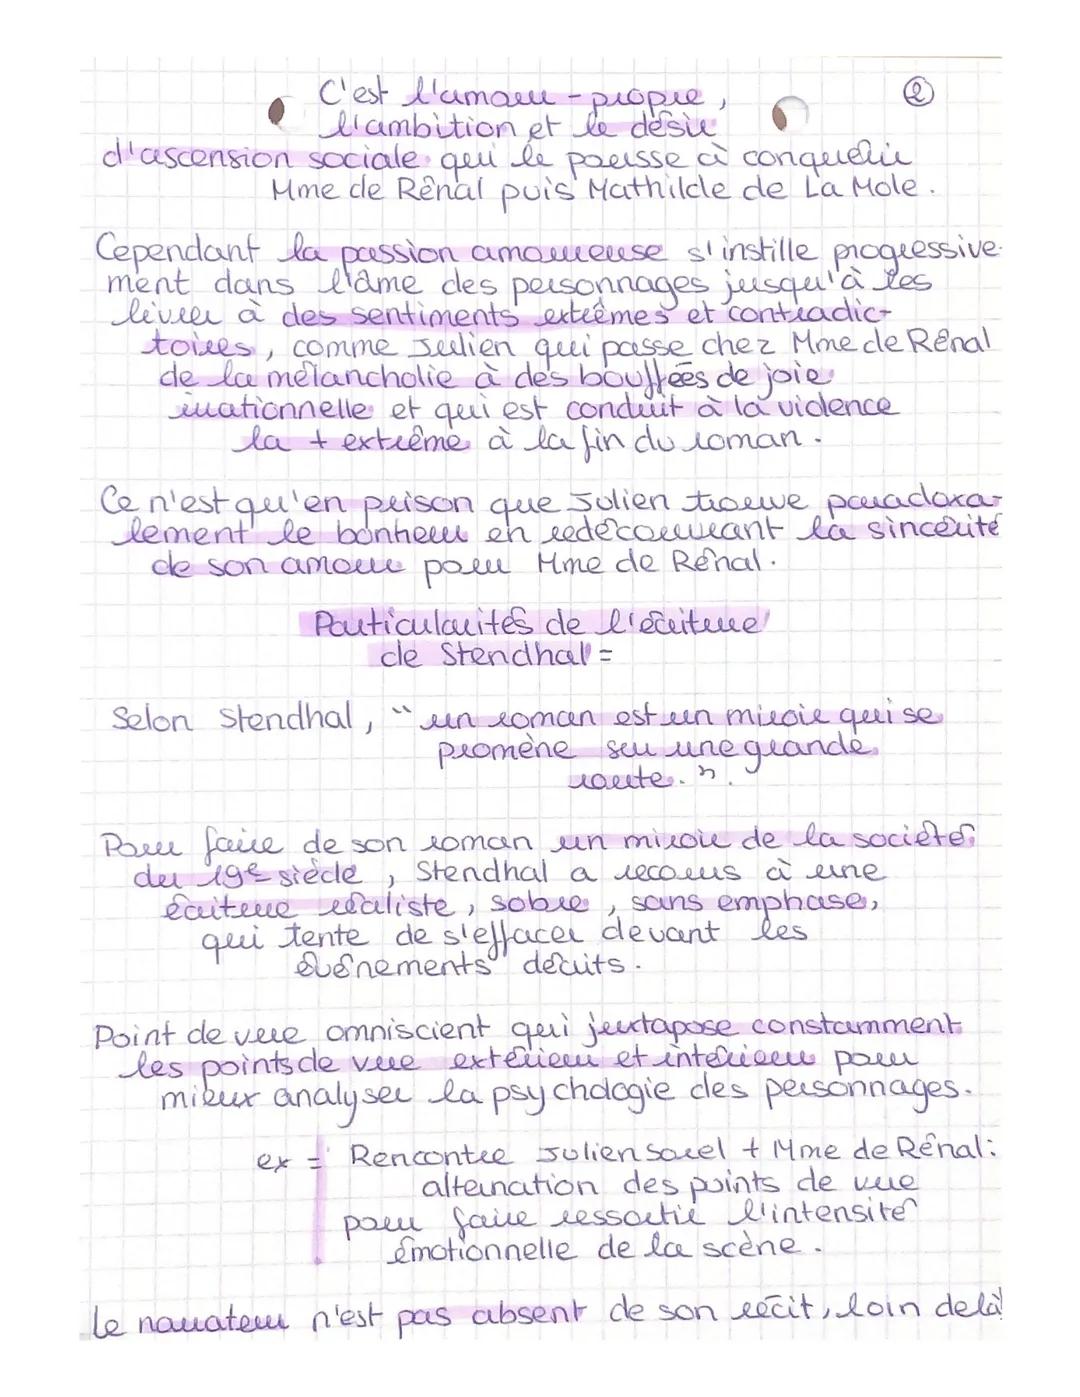 C'est l'amour-propre, ②
l'ambition et le désir
d'ascension sociale qui le pousse à conquérir
Mme de Rênal puis Mathilde de La Mole.
Cependant la passion amoureuse s'instille progressive-
ment dans l'âme des personnages jusqu'à les
livrer à des sentiments extrêmes et contradic-
toires, comme Julien qui passe chez Mme de Rênal
de la mélancholie à des bouffées de joie
irrationnelle et qui est conduit à la violence
la + extrême à la fin du roman.
Ce n'est qu'en prison que Julien trouve paradoxa-
lement le bonheur en redécouvrant la sincérité
de son amour pour Mme de Rênal.
Particularités de l'écriture
de Stendhal =
Selon Stendhal, "un roman est un miroir qui se
promène sur une grande
route.".
Pour faire de son roman un miroir de la société
du 19e siècle, Stendhal a recours à une
écriture réaliste, sobre, sans emphase,
qui tente de s'effacer devant les
évênements décrits.
Point de vue omniscient qui juxtapose constamment
les points de vue extérieur et intérieur pour
mieux analyser la psychologie des personnages.
ex = Rencontre Julien Sorel + Mme de Rênal :
alternation des points de vue
pour faire ressortir l'intensité
émotionnelle de la scène.
Le narrateur n'est pas absent de son récit, loin de là!